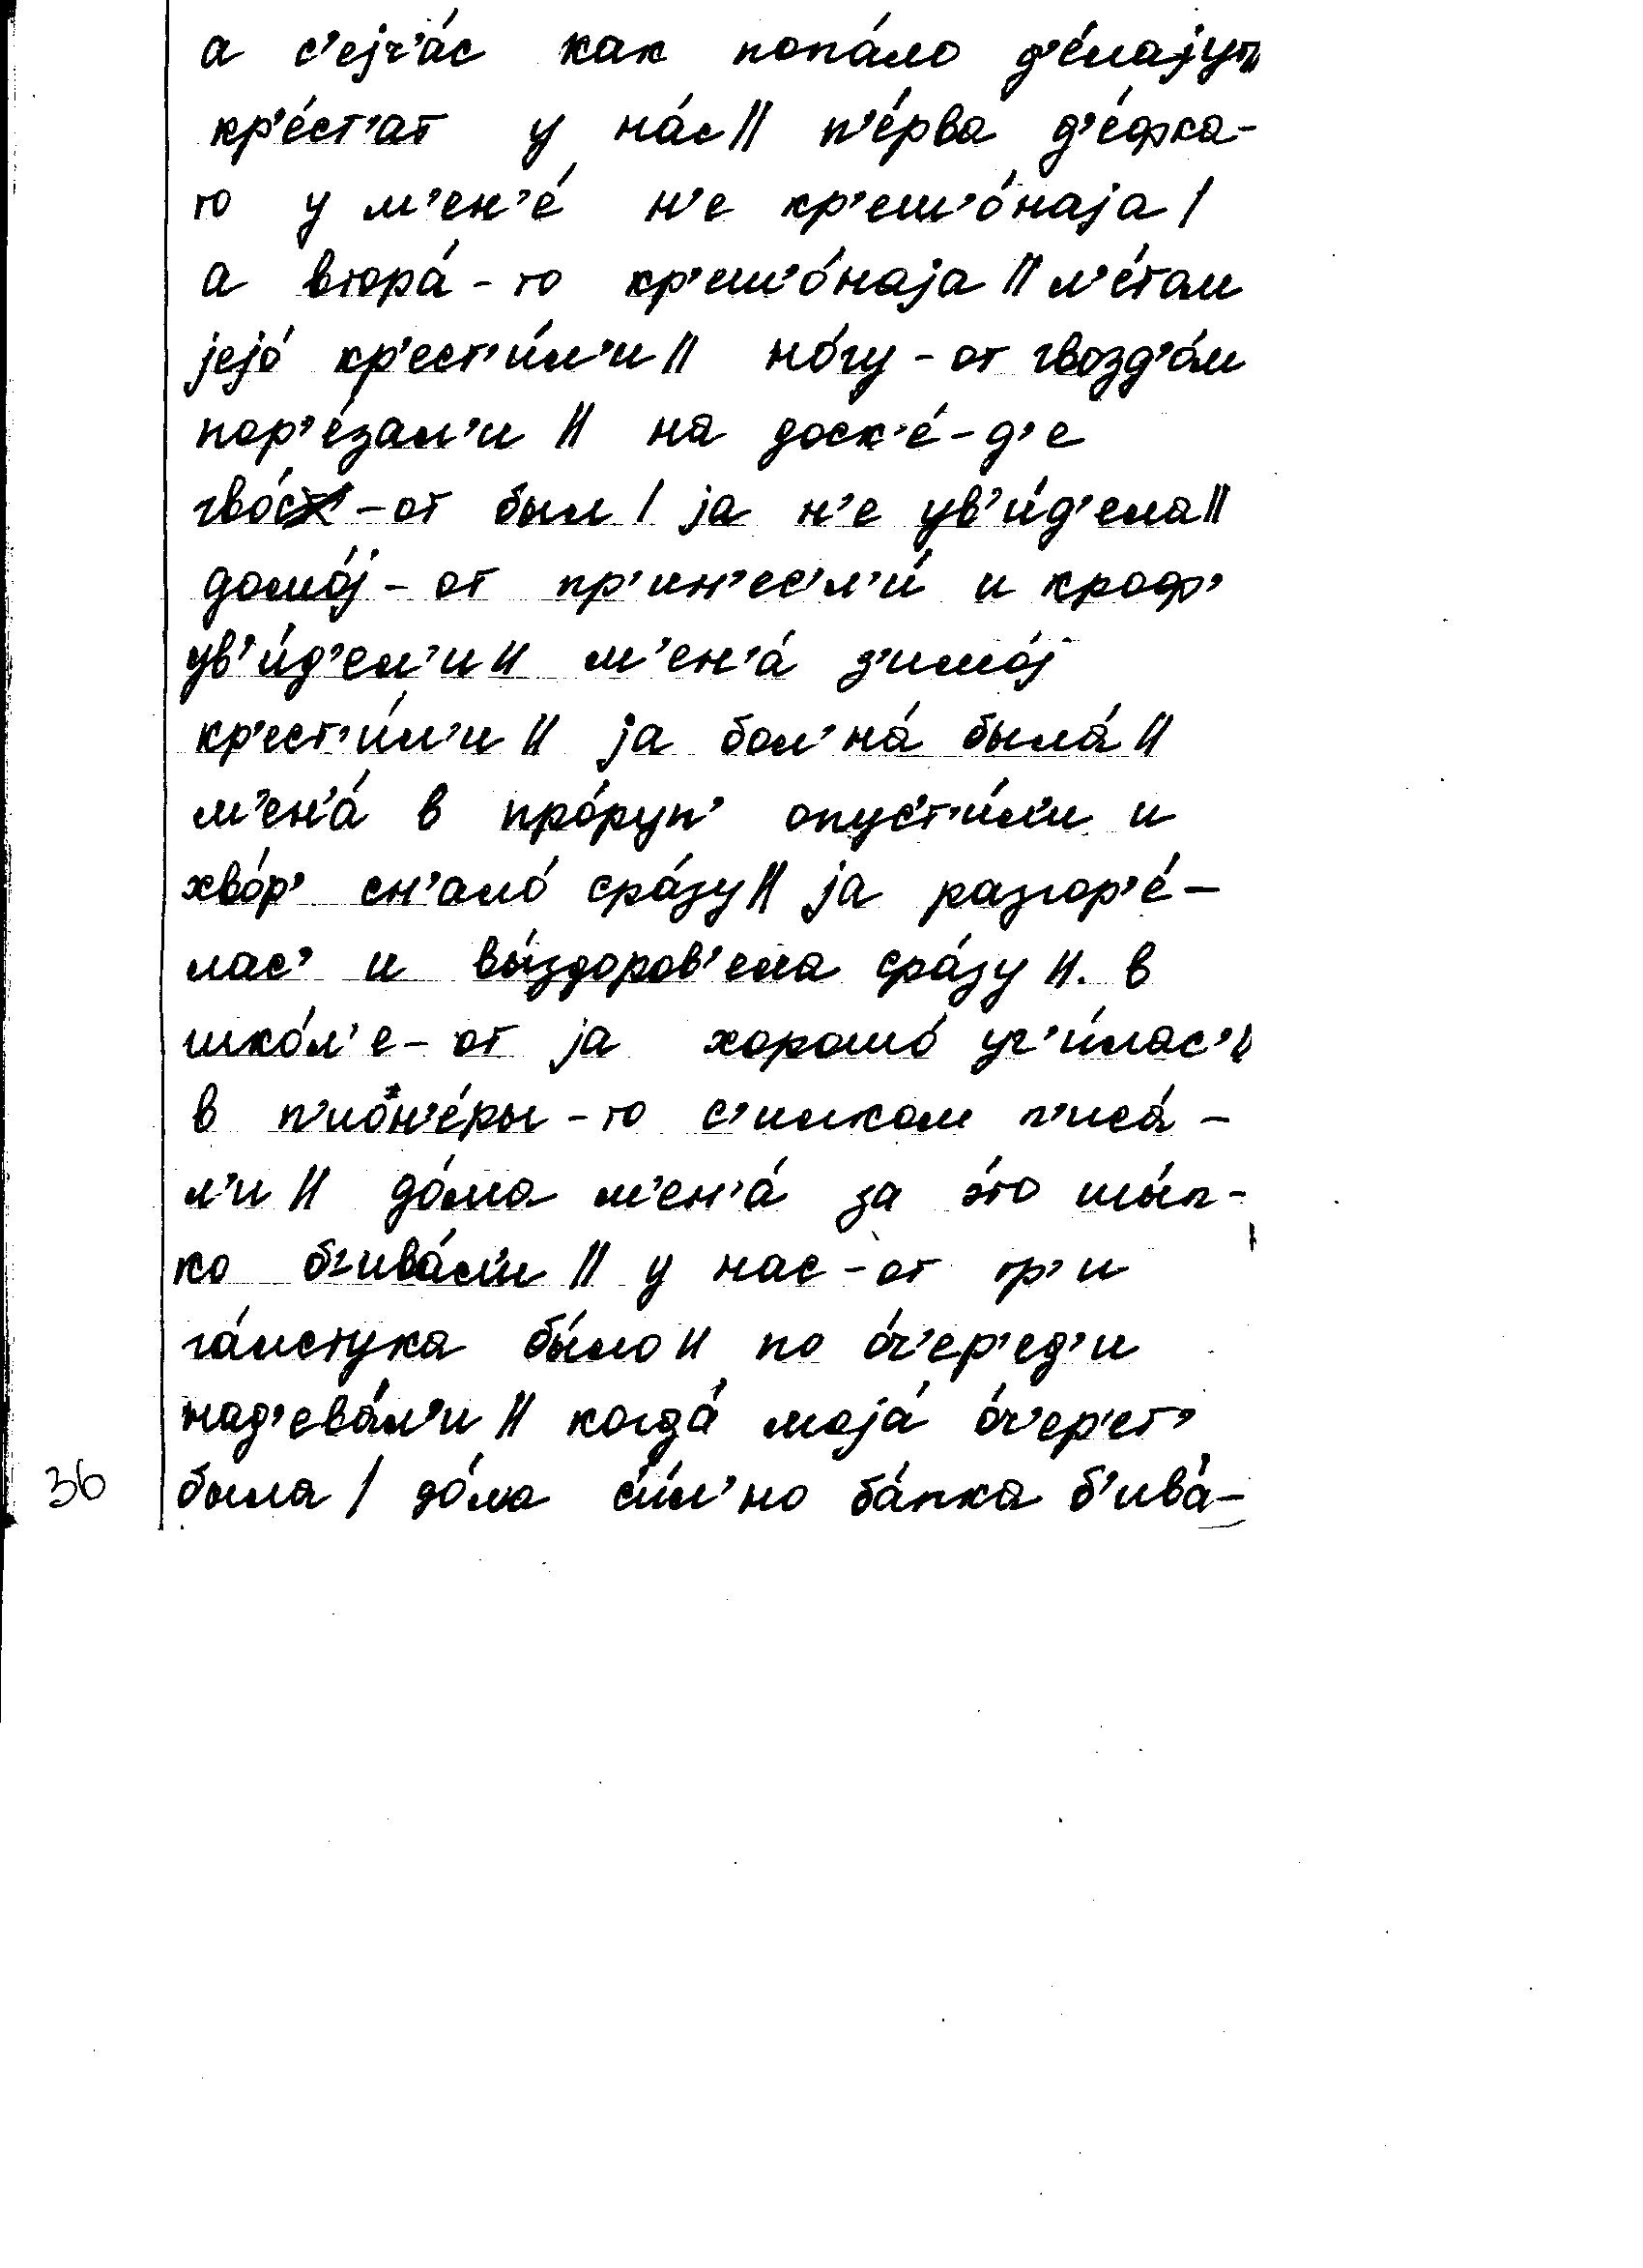 а с'еjч'а́с как попа́ло д'е́лаjут
кр'е́ст'ат у на́с || п'е́рва д'е́фка-
то у м'ен'е́ н'е кр'еш'о́наjа |
а втора́-то кр'еш'о́наjа || л'е́том
jеjо́ кр'ест'и́л'и || но́гу-от гвозд'о́м
пор'е́зал'и || на доск'е́-д'е
гво́ст'-от был | jа н'е ув'и́д'ела ||
домо́j-от пр'ин'ес'л'и́ и кроф'
ув'и́д'ел'и || м'ен'а́ з'имо́j
кр'ест'и́л'и || jа бол'на́ была́ ||
м'ен'а́ в про́руп' опус'т'и́л'и и
хво́р' сн'ало́ сра́зу || jа разгор'е́-
лас' и вы́здоров'ела сра́зу ||. в
шко́л'е-от jа хорошо́ уч'и́лас' ||
в п'ион'е́ры-то с'илком п'иса́-
л'и || до́ма м'ен'а́ за э́то шы́п-
ко б'ива́л'и || у нас-от тр'и
га́лстука бы́ло || по о́ч'ер'ед'и
над'ева́л'и || когда́ моjа́ о́ч'ер'ет'
была | до́ма с'и́л'но ба́пка б'ива́-
36